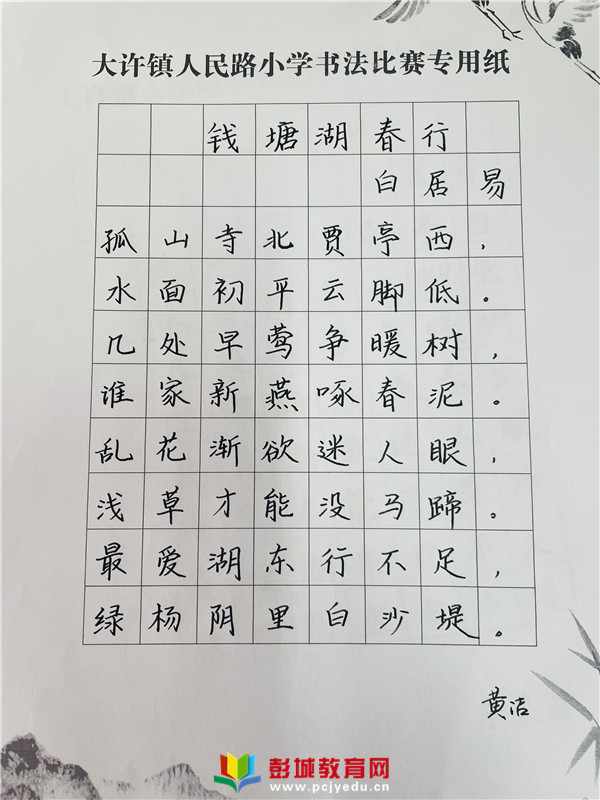 大许镇人民路小学书法比赛专用纸
钱塘湖春行
白居易
孤山寺北贾亭西，
水面初平云脚低。
几处早莺争暖树，
谁家新燕啄春泥。
乱花渐欲迷人眼，
浅草才能没马蹄。
最爱湖东行不足，
绿杨阴里白沙堤。
黄洁
彭城教育网
www.pcjyedu.cn